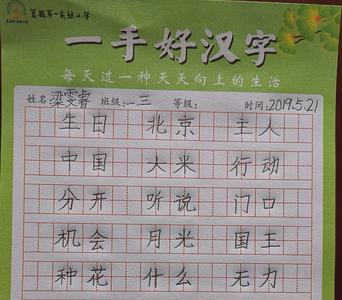 莒县第一实验小学
一手好汉字
每天过一种天天向上的生活
姓名:梁雯睿 班级:一三 等级: 时间:2019.5.21
生日 北京 主人
中国 大米 行动
分开 听说 门口
机会 月光 国王
种花 什么 无力